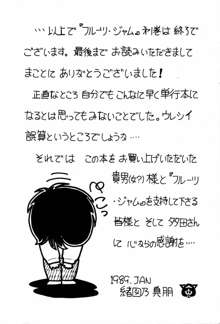 …以上で『フルーツ・ジャム』初巻は終りで
ございます。最後まで お読みいただきまして
まことに ありがとうございました!
正直なところ自分でも こんなに早く単行本に
なるとは 思ってもみないことでした。ウレシイ
誤算というところでしょうな…
それでは この本をお買い上げいただいた
貴男(ゆう)様と『フルーツ
・ジャム』を支持して下さる
皆様と そして 多田さん
に 心からの感謝を…
ぺこっ
1989. JAN
緒図乃真朋